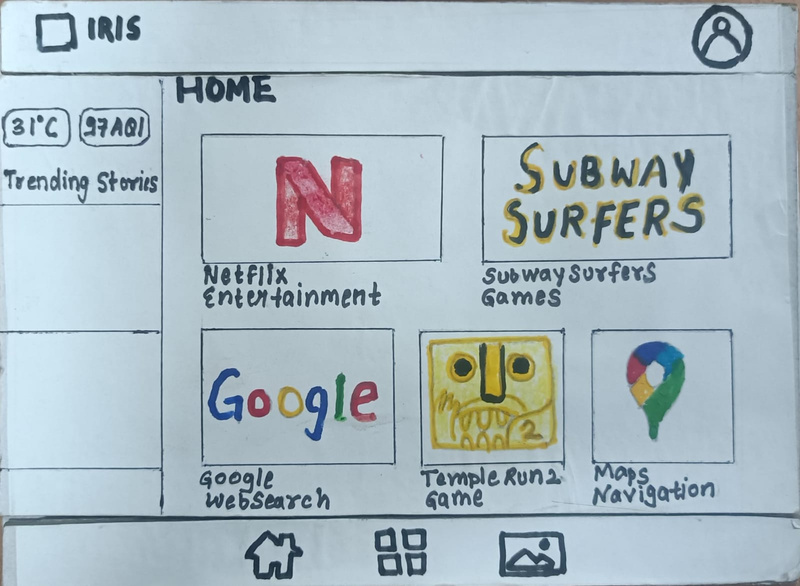 IRIS
HOME
31°C
97AQI
Trending Stories
N
Netflix
Entertainment
SUBWAY
SURFERS
Subway Surfers
Games
Google
Google
WebSearch
2
Temple Run 2
Game
Maps
Navigation